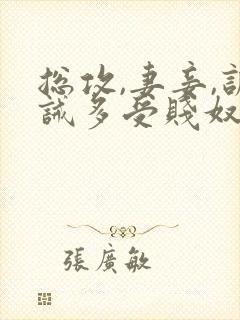 总攻,妻妾,訓
誡多受賤奴
張廣敏